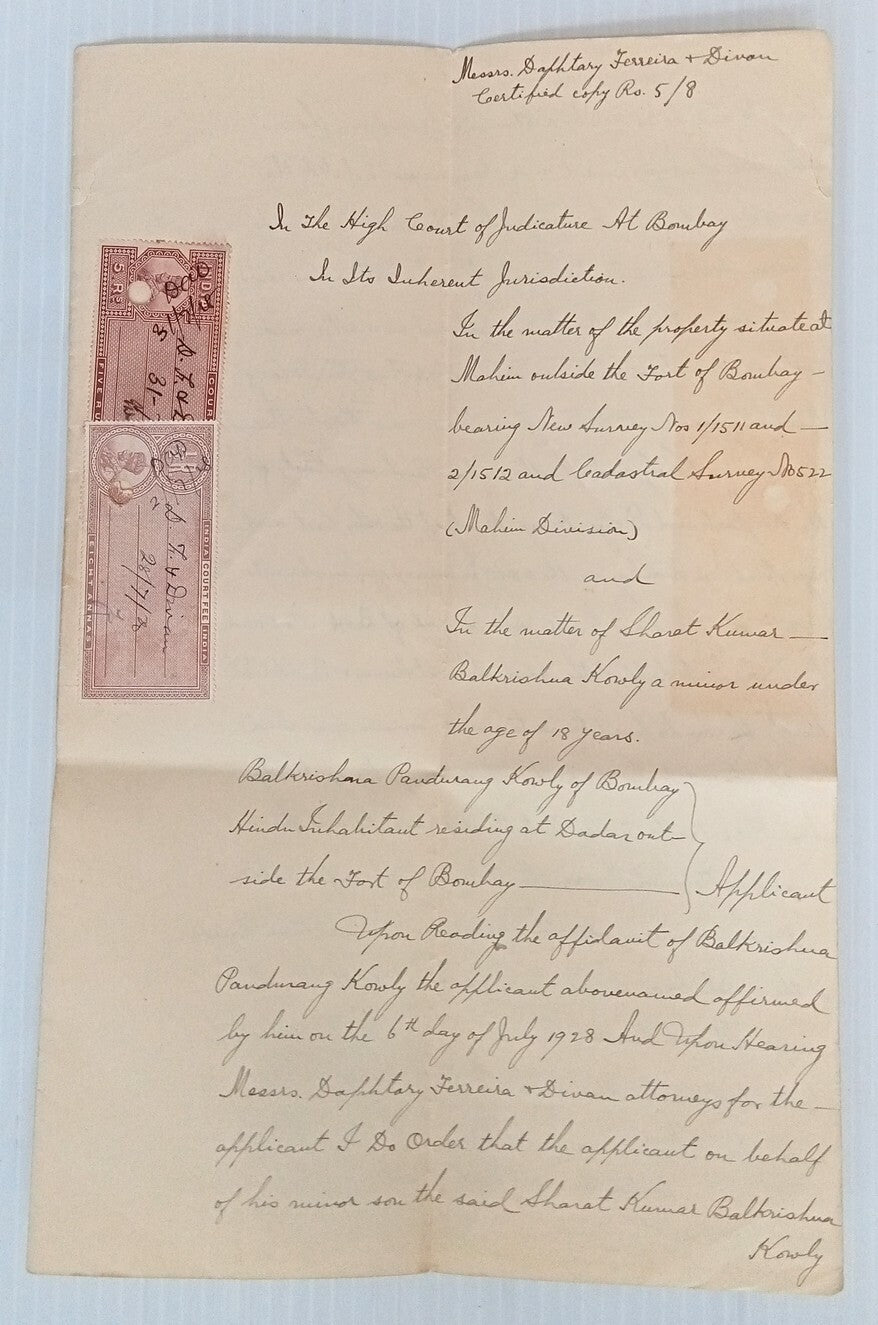 Messrs. Daphtary Ferreira + Divan
Certified copy Rs. 5/8
In The High Court of Judicature At Bombay
In Its Inherent Jurisdiction.
In the matter of the property situate at
Mahim outside the Fort of Bombay —
bearing New Survey Nos 1/1511 and —
2/1512 and Cadastral Survey No 522
(Mahim Division)
and
In the matter of Sharat Kumar —
Balkrishna Kowly a minor under
the age of 18 years.
Balkrishna Pandurang Kowly of Bombay
Hindu Inhabitant residing at Dadar out-
side the Fort of Bombay — Applicant
Upon Reading the affidavit of Balkrishna
Pandurang Kowly the applicant abovenamed affirmed
by him on the 6th day of July 1928 And Upon Hearing
Messrs. Daphtary Ferreira + Divan attorneys for the —
applicant I Do Order that the applicant on behalf
of his minor son the said Sharat Kumar Balkrishna
Kowly
5 RS
IND
FIVE RU
COUR
EIGHT ANNAS
INDIA COURT FEE INDIA
D. F. & Divan
28/7/28